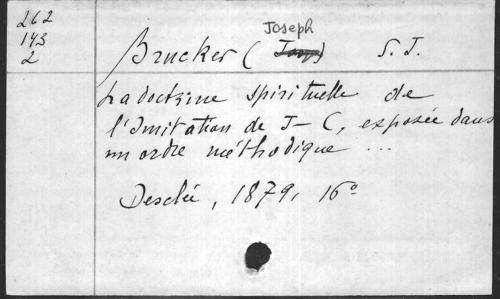 262
143
2
Joseph
Brucker ( ) S. J.
La doctrine spirituelle de
l'Imitation de J-C, exposée dans
un ordre méthodique ...
Desclée, 1879, 16°